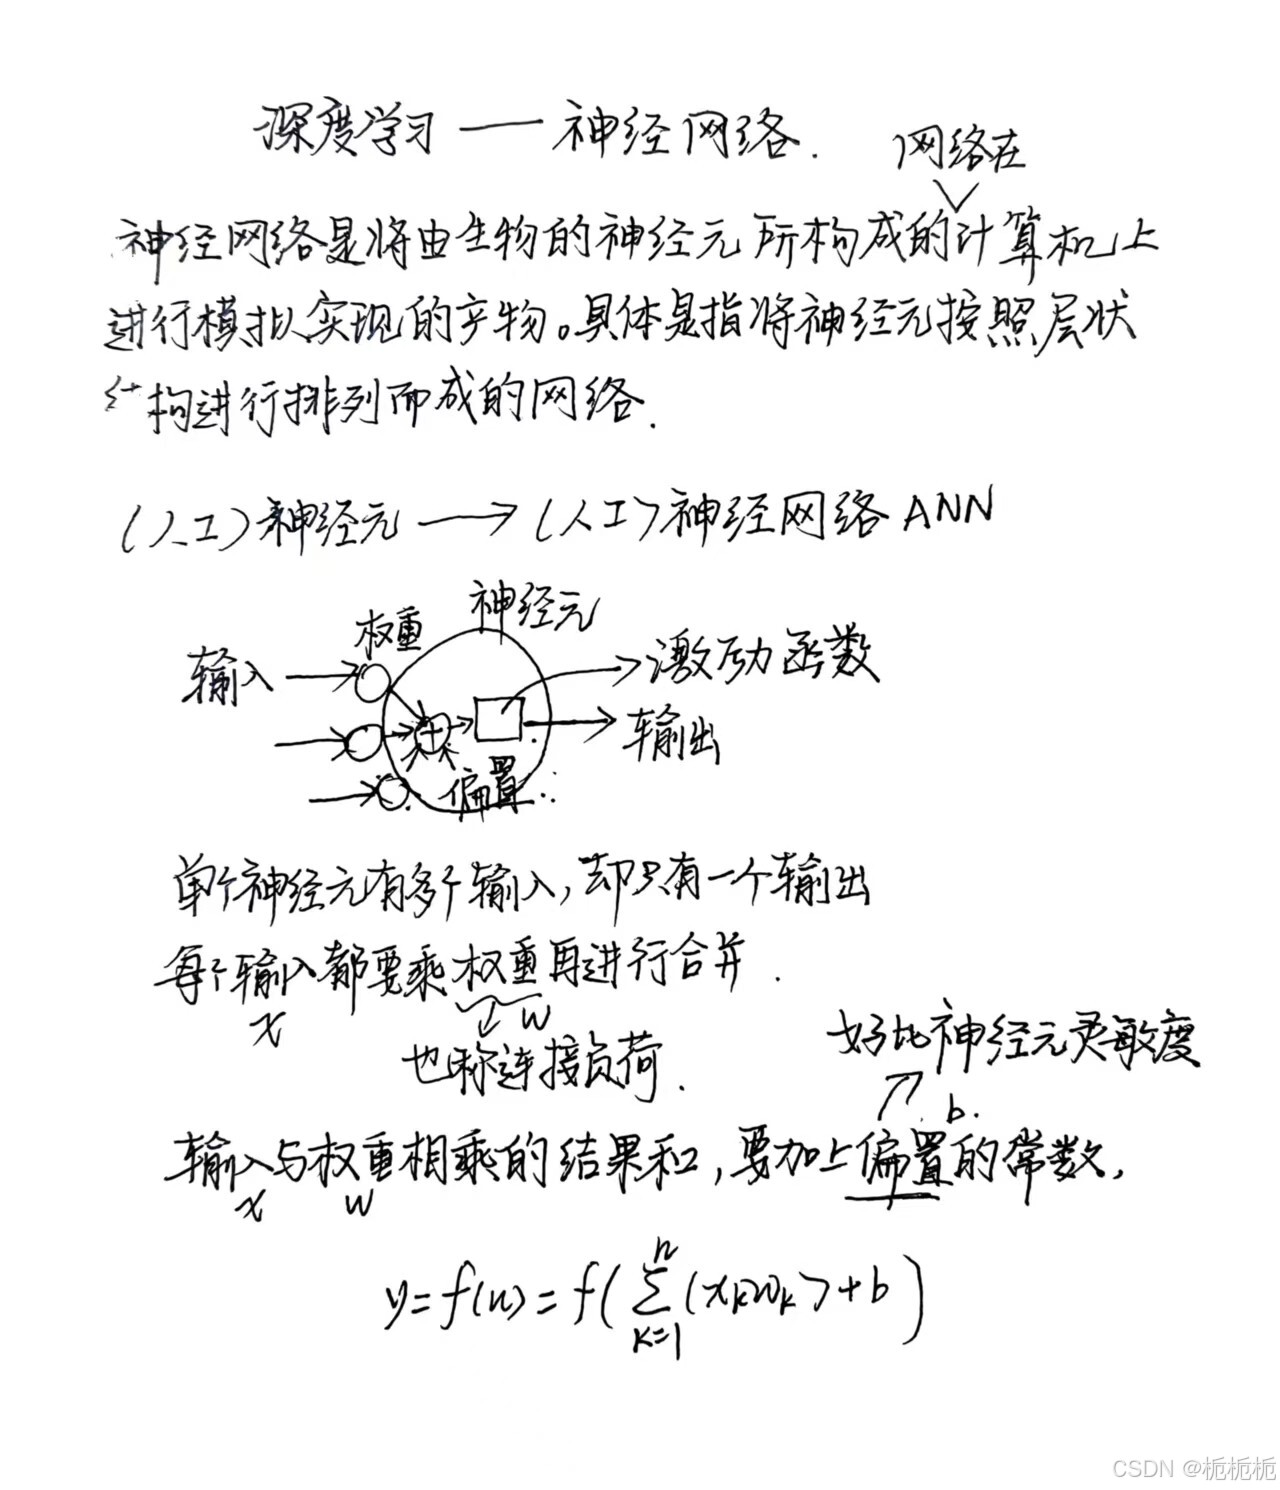 深度学习——神经网络.
网络在
神经网络是将由生物的神经元所构成的计算机上
进行模拟实现的产物。具体是指将神经元按照层状
结构进行排列而成的网络.
(人工)神经元→(人工)神经网络ANN
神经元
权重
输入
激励函数
输出
偏置
单个神经元有多个输入,却只有一个输出
每个输入都要乘权重再进行合并.
x w
也称连接负荷.
好比神经元灵敏度
b.
输入与权重相乘的结果和,要加上偏置的常数,
x w
y=f(u)=f(∑(xₖwₖ)+b)
n
k=1
CSDN @栀栀栀